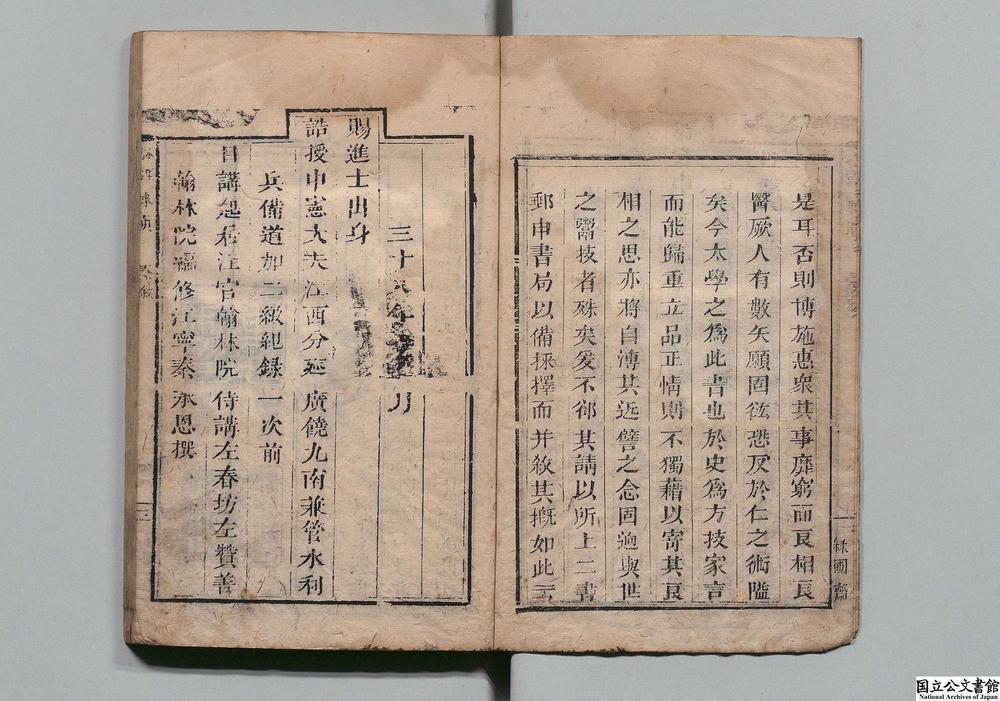 是耳否則博施惠衆其事靡窮而良相良
醫厥人有數矣願固兹恐反於仁之術隘
矣今太學之爲此書也於史爲方技家言
而能歸重立品正情則不獨藉以寄其良
相之思亦將自溥其近譬之念固逈與世
之鬻技者殊矣爰不祁其請以所上二書
郵申書局以備採擇而并敘其概如此云
三十六年 月
賜進士出身
誥授中憲大夫江西分巡廣饒九南兼管水利
兵備道加二級紀錄一次前
日講起居注官翰林院侍講左春坊左贊善
翰林院編修江寧秦承恩撰
國立公文書館
National Archives of Japan